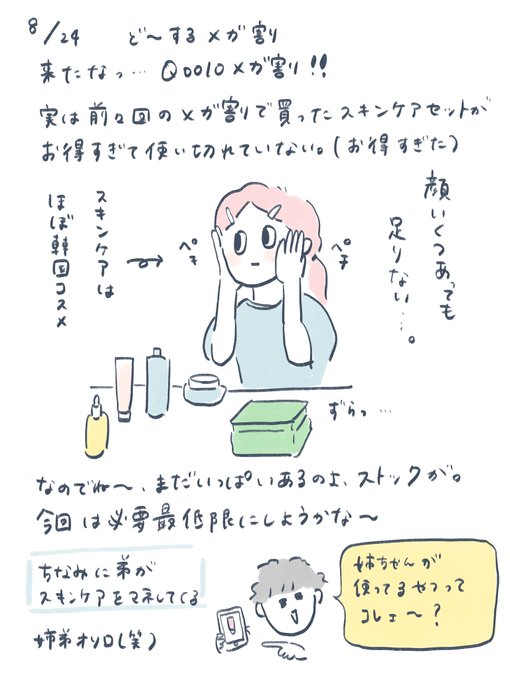 8/24 ど〜するメガ割り
来たなっ…Qoo10メガ割り!!
実は前々回のメガ割りで買ったスキンケアセットが
お得すぎて使い切れていない。(お得すぎた)
顔いくつあっても
足りない…。
スキンケアは
ほぼ韓国コスメ
ペチ
ペチ
ずらっ…
なのでね〜、まだいっぱいあるのよ、ストックが。
今回は必要最低限にしようかな〜
ちなみに弟が
スキンケアをマネしてくる
姉弟オソロ(笑)
姉ちゃんが
使ってるやつって
コレェ〜?